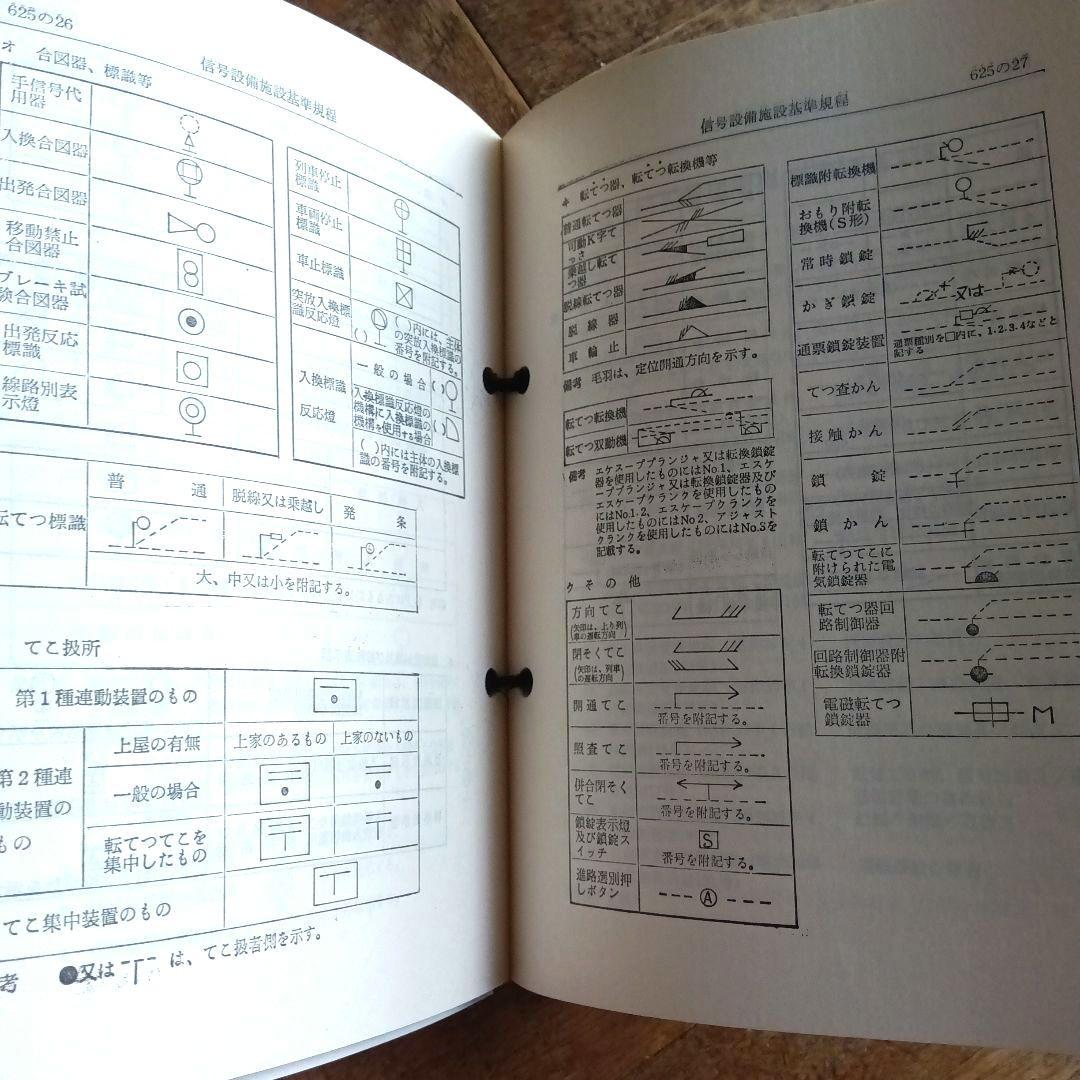 625の26
信号設備施設基準規程
オ 合図器、標識等
手信号代
用器
入換合図器
出発合図器
移動禁止
合図器
ブレーキ試
験合図器
出発反応
標識
線路別表
示燈
列車停止
標識
車両停止
標識
車止標識
突放入換標
識反応燈
( )
( )内には、主体
の突放入換標識の
番号を附記する。
入換標識
反応燈
一般の場合( )
入換標識反応燈の
機構に入換標識の
機構を使用する場合
( )
( )内には主体の入換標
識の番号を附記する。
転てつ標識
普通
脱線又は乗越し
発条
大、中又は小を附記する。
てこ扱所
第1種連動装置のもの
第2種連
動装置の
もの
上屋の有無
上家のあるもの
上家のないもの
一般の場合
転てつてこを
集中したもの
てこ集中装置のもの
考 ●又は は、てこ扱者側を示す。
625の27
信号設備施設基準規程
キ 転てつ器、転てつ転換機等
普通転てつ器
可動K字て
っさ
乗越し転て
つ器
脱線転てつ器
脱線器
車輪止
備考 毛羽は、定位開通方向を示す。
転てつ転換機
転てつ双動機
備考 エケスーププランジャ又は転換鎖錠
器を使用したものにはNo.1、エスケ
ーププランジャ又は転換鎖錠器及び
エスケープクランクを使用したもの
にはNo.1・2、エスケープクランクを
使用したものにはNo.2、アジャスト
クランクを使用したものにはNo.3を
記載する。
ク その他
方向てこ
(矢印は、上り列
車の運転方向)
閉そくてこ
(矢印は、列車
の運転方向)
開通てこ
番号を附記する。
照査てこ
番号を附記する。
併合閉そく
てこ
番号を附記する。
鎖錠表示燈
及び鎖錠ス
イッチ
S
番号を附記する。
進路選別押
しボタン
A
標識附転換機
おもり附転
換機(S形)
常時鎖錠
かぎ鎖錠
又は
通票鎖錠装置
通票種別を□内に、1.2.3.4などと
記する
てつ査かん
接触かん
鎖錠
鎖かん
転てつてこに
附けられた電
気鎖錠器
転てつ器回
路制御器
回路制御器附
転換鎖錠器
電磁転てつ
鎖錠器
M